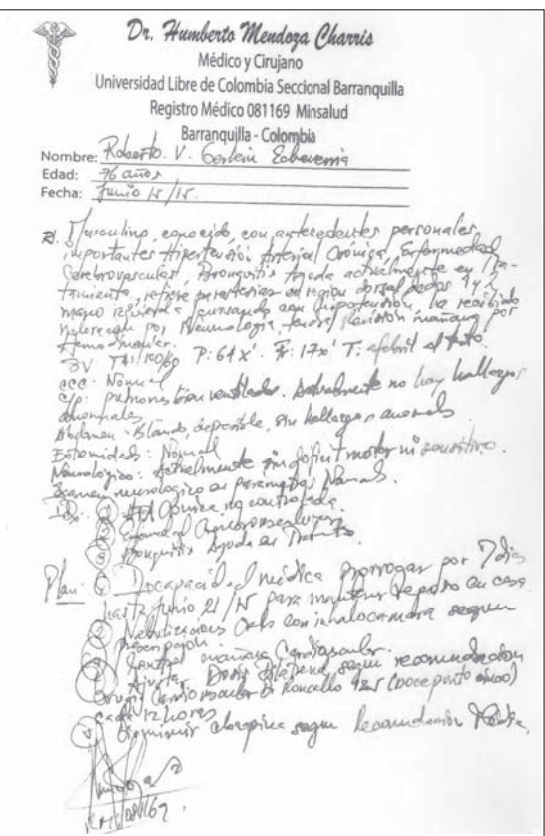 Dr. Humberto Mendoza Charris
Médico y Cirujano
Universidad Libre de Colombia Seccional Barranquilla
Registro Médico 081169 Minsalud
Barranquilla - Colombia
Nombre: Roberto. V. Gerlein Echeverria
Edad: 76 años
Fecha: Junio 15/15.
Masculino, conocido, con antecedentes personales
importantes Hipertensión Arterial Crónica, Enfermedad
Cerebrovascular, Bronquitis Aguda actualmente en Tra-
tamiento, refiere parestesias en region dorsal dedos 4 y 5
mano izquierda, cursando con hipotensión, ha recibido
por Neumología, revisión mañana por
Hemodinamia.
SV TA: 100/60 P: 64x' Fr: 17x' T: afebril al tacto.
CCC: Normal
C/P: pulmones bien ventilados. Actualmente no hay hallazgos
anormales
Abdomen: Blando, depresible, sin hallazgos anormales
Extremidades: Normal
Neurológico: Actualmente sin déficit motor ni sensitivo.
Examen neurologico en parametros Normal.
IDx: 1 HTA Crónica no controlada.
2 Enfermedad Cerebrovascular
3 Bronquitis Aguda en Tratamiento
Plan: 1 Incapacidad médica prorrogar por 7 dias
hasta Junio 21/15 para mantener reposo en casa
2 Nebulizaciones con inhalocamara segun
prescripción.
3 Control mañana Cardiovascular.
4 Ajustar Dosis segun recomendacion
Cirugia Cardiovascular Dr Roncallo 12.5 (doce punto cinco)
cada 12 horas
5 segun recomendación
RM 081169.